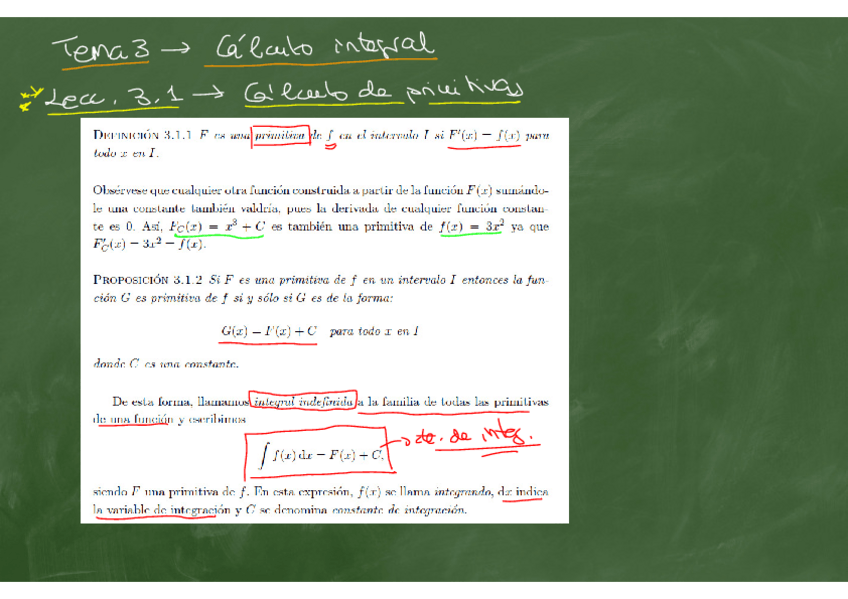 Tema 3 → Cálculo integral
Lecc. 3.1 → Cálculo de primitivas
DEFINICIÓN 3.1.1 F es una primitiva de f en el intervalo I si F'(x) = f(x) para
todo x en I.
Obsérvese que cualquier otra función construida a partir de la función F(x) sumándo-
le una constante también valdría, pues la derivada de cualquier función constan-
te es 0. Así, F_C(x) = x³ + C es también una primitiva de f(x) = 3x² ya que
F'_C(x) = 3x² = f(x).
PROPOSICIÓN 3.1.2 Si F es una primitiva de f en un intervalo I entonces la fun-
ción G es primitiva de f si y sólo si G es de la forma:
G(x) = F(x) + C para todo x en I
donde C es una constante.
De esta forma, llamamos integral indefinida a la familia de todas las primitivas
de una función y escribimos
∫ f(x) dx = F(x) + C, → cte. de integ.
siendo F una primitiva de f. En esta expresión, f(x) se llama integrando, dx indica
la variable de integración y C se denomina constante de integración.